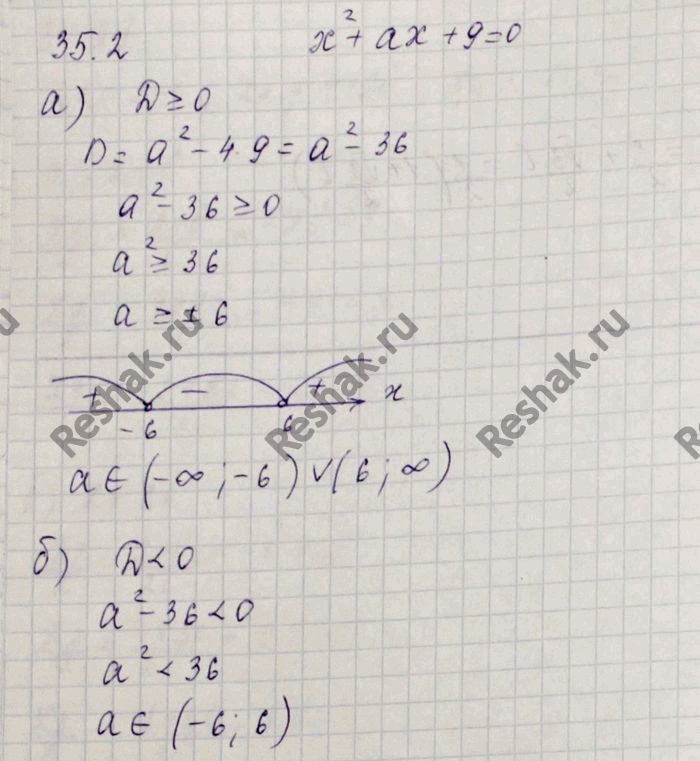 35.2 x² + ax + 9 = 0
а) D ≥ 0
D = a² - 4·9 = a² - 36
a² - 36 ≥ 0
a² ≥ 36
a ≥ ± 6
+ - + x
-6 6
a ∈ (-∞; -6) ∨ (6; ∞)
б) D < 0
a² - 36 < 0
a² < 36
a ∈ (-6; 6)
Reshak.ru
Reshak.ru
Reshak.ru